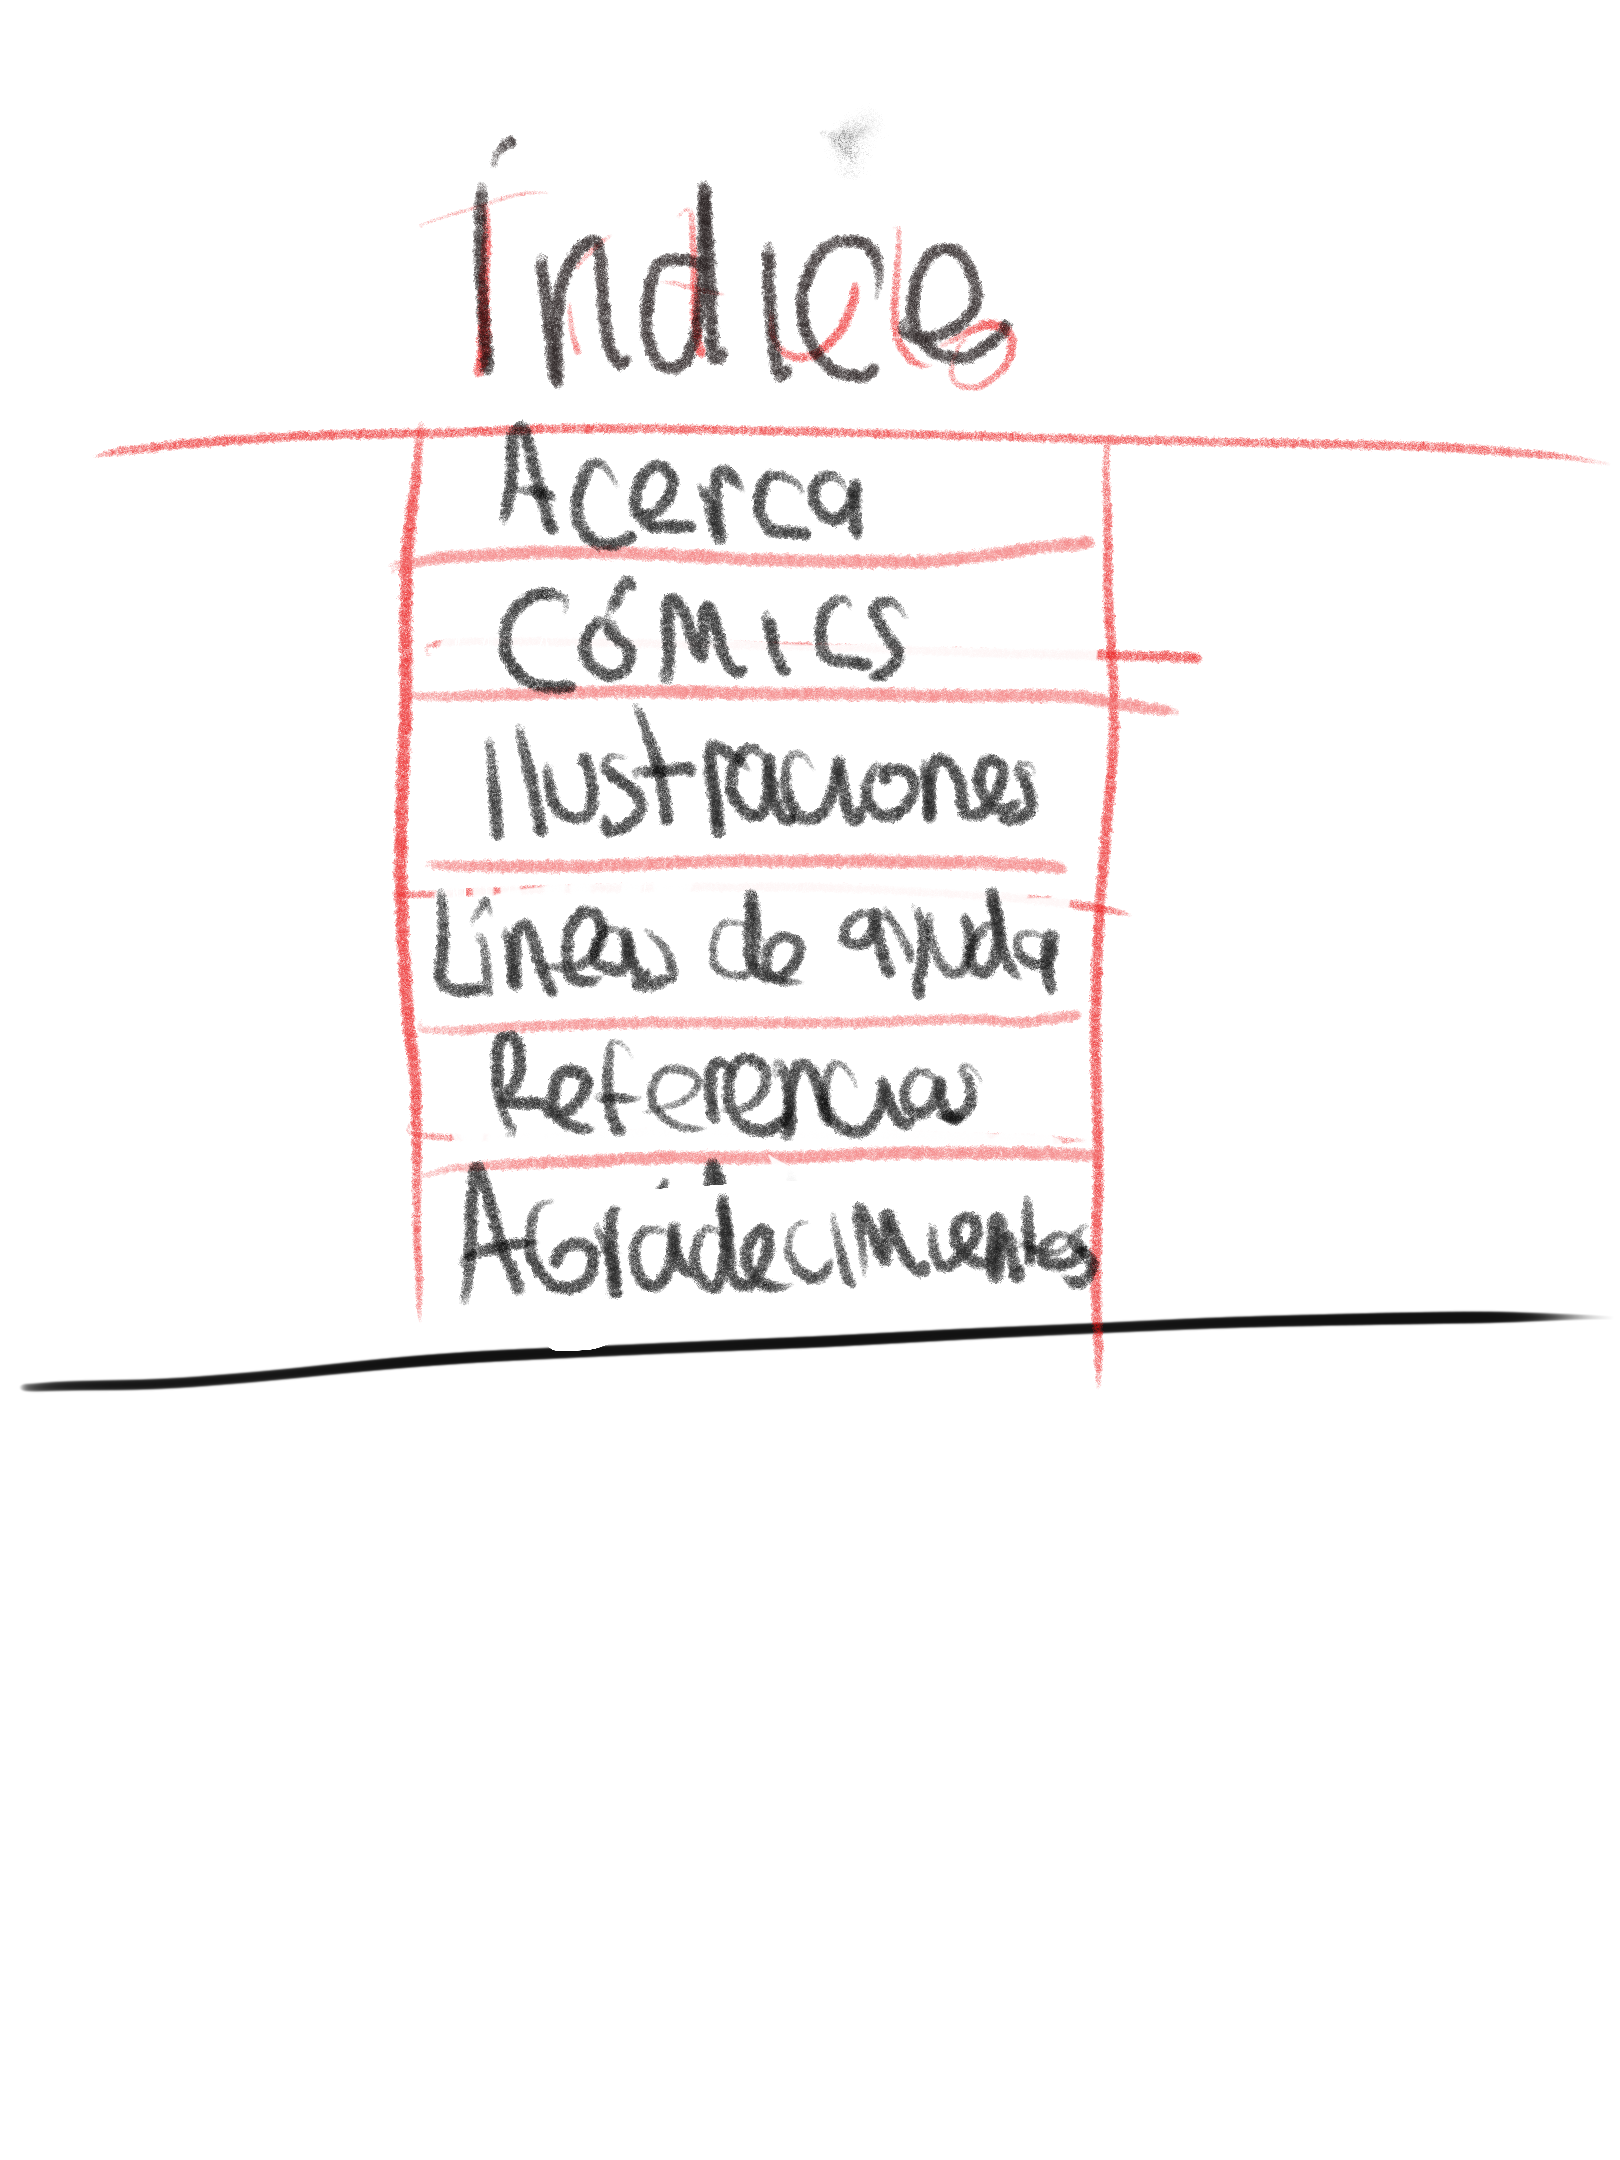 Índice
Acerca
Cómics
Ilustraciones
Líneas de ayuda
Referencias
Agradecimientos